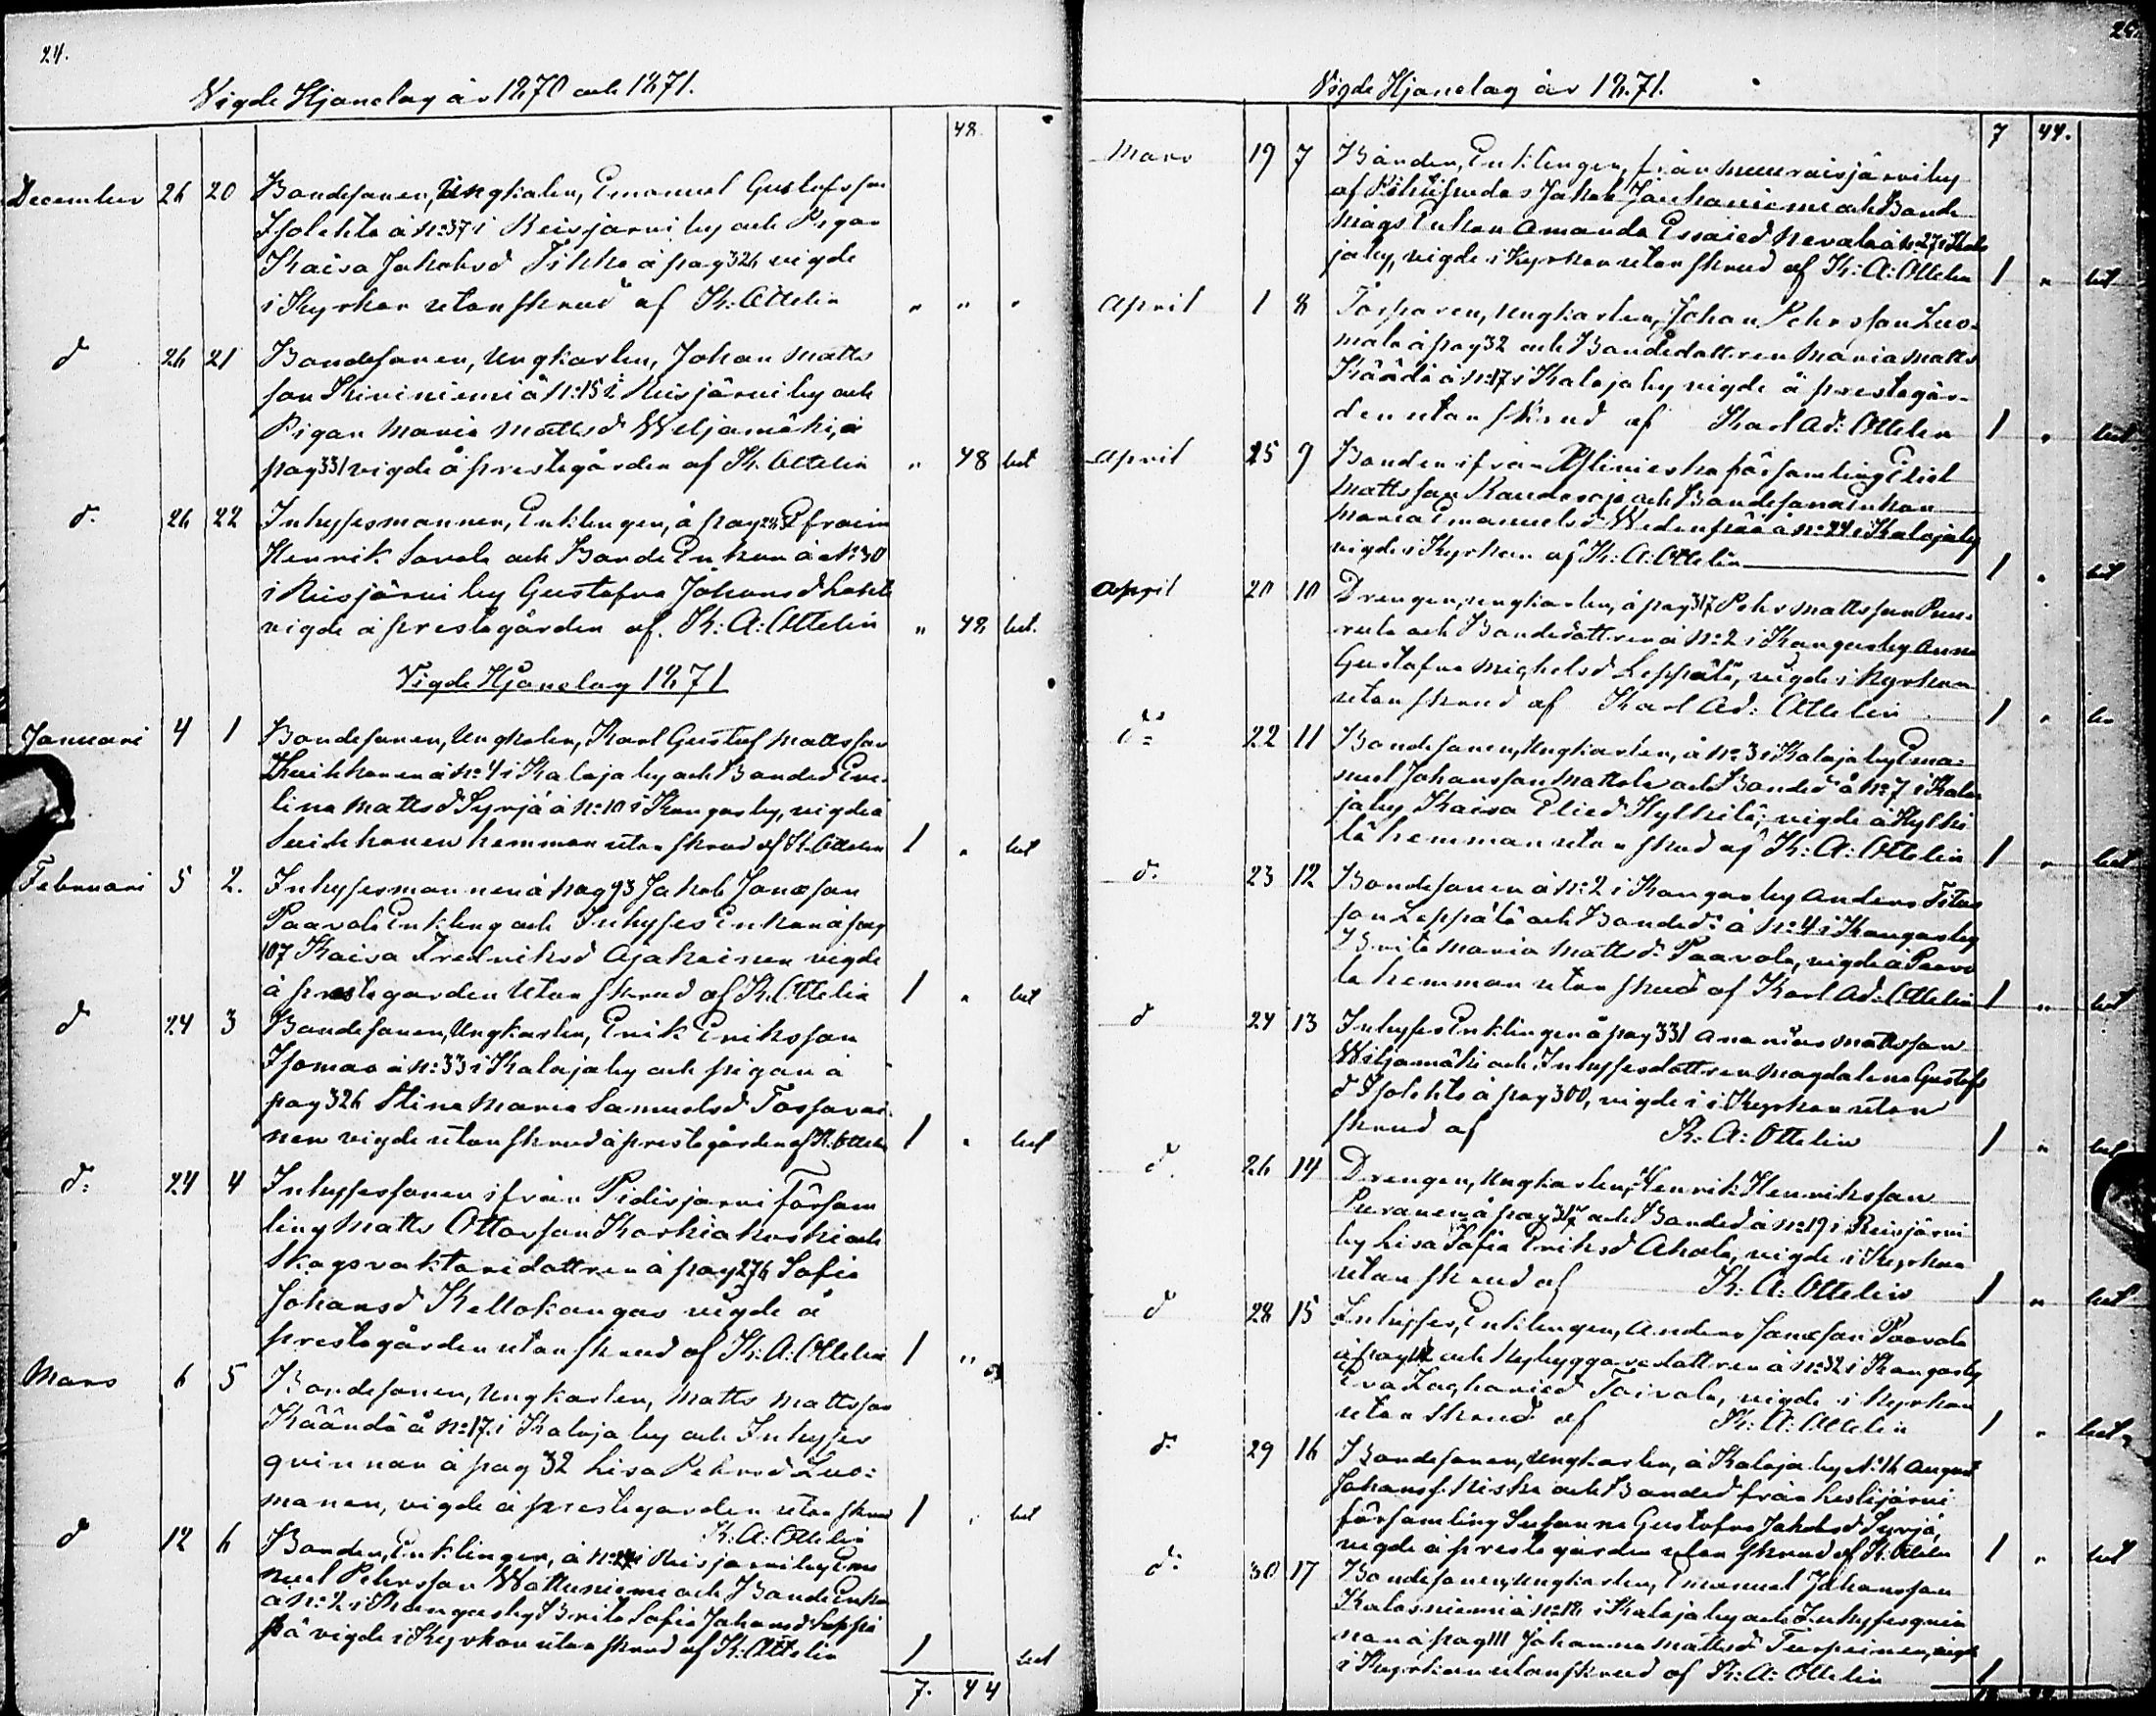 24.
Vigde Hjonelag år 1870 och 1871.
48
December 26 20 Bondesonen, Ungkarlen, Emanuel Gustafsson
Isolehto å No:37 i Reisjärvi by och Pigan
Kaisa Jakobsd Tikka å pag 326 vigde
i Kyrkan utan skrud af K: Ottelin " " "
d 26 21 Bondesonen, Ungkarlen, Johan Matts
son Kiviniemi å No:15 i Reisjärvi by och
Pigan Maria Mattsd Weljamäki, å
pag 331 vigde å prestegården af K. Ottelin " 48 bet
d. 26 22 Inhysesmannen, Enklingen, å pag Efraim
Henrik Savola och Bonde Enkan å No 30
i Reisjärvi by Gustafva Johansd Lehto
vigde å prestegården af. K: A: Ottelin " 48 bet.
Vigde Hjonelag 1871
Januari 4 1 Bondesonen, Ungkarlen, Karl Gustaf Mattsson
Huikkonen å No: 4 i Kalaja by och Bonded Eve-
lina Mattsd Syrjä å No: 10 i Kangas by, vigde å
hemman utan skrud af K. Ottelin 1 " bet
Februari 5 2. Inhysesmannen å pag 93 Jakob Jonasson
Paavola Enkling och Inhyses Enkan å pag
107 Kaisa Fredriksd Ajakainen vigde
å prestegården Utan skrud af K. Ottelin 1 " bet
d 24 3 Bondesonen, Ungkarlen, Erik Eriksson
Isomaa å No: 33 i Kalaja by och pigan å
pag 326 Stina Maria Samuelsd Tossavai-
nen vigde utan skrud å prestegården af K. Ottelin 1 " bet
d: 24 4 Inhysessonen ifrån Pidisjärvi Försam
ling Matts Ottosson Koskiakoski och
Skogsvaktaredottren å pag 276 Sofia
Johansd Kellokangas vigde å
prestegården utan skrud af K: A: Ottelin 1 "
Mars 6 5 Bondesonen, Ungkarlen, Matts Mattsson
Käändä å No: 17. i Kalaja by och Inhyses
qvinnan å pag 32 Lisa Pehrsd Luo-
manen, vigde å prestegården utan skrud 1 " bet
K. A: Ottelin
d 12 6 Bonden, Enklingen, å No: i Reisjärvi by Ema
nuel Pehrsson Wattuniemi och Bonde Enkan
å No: 2 i Kangas by Brita Sofia Johansd Leppä
lä vigde i Kyrkan utan skrud af K: Ottelin 1 bet
7. 44
Vigde Hjonelag år 1871.
7 44.
Mars 19 7 Bonden, Enklingen, från Muurasjärvi by
af Pihtipudas Jakob Jauhoniemi och Bonde
mågs Enkan Amanda Esaied Nevala å No: 27 i Kala
ja by, vigde i Kyrkan utan skrud af K: A: Ottelin 1 " bet
April 1 8 Torparen, Ungkarlen, Johan Pehrsson Luo-
mala å pag 32 och Bondedottren Maria Mattsd
Käändä å No: 17 i Kalaja by vigde å prestegår-
den utan skrud af Karl Ad: Ottelin 1 " bet
April 25 9 Bonden ifrån Ylivieska församling Elias
Mattsson Raudasoja och Bondesons Enkan
Maria Emanuelsd Wedenpää å No: 24 i Kalaja by
vigde i Kyrkan af K: A: Ottelin 1 " bet
April 20 10 Drengen, ungkarlen, å pag 317 Pehr Mattsson Puu-
rula och Bondedottren å No: 2 i Kangas by Anna
Gustafva Michelsd Leppälä, vigde i Kyrkan
utan skrud af Karl Ad: Ottelin 1 "
22 11 Bondesonen, Ungkarlen, å No: 3 i Kalaja by Ema-
nuel Johansson Mattola och Bonded å No: 7 i Kala
ja by Kaisa Elied Kylkilä; vigde å Kylki
lä hemman utan skrud af K: A: Ottelin 1 " bet
d: 23 12 Bondesonen å No: 2 i Kangas by Anders Titus
son Leppälä och Bonded: å No: 4 i Kangas by
Brita Maria Mattsd: Paavola, vigde å Paavo
la hemman utan skrud af Karl Ad: Ottelin 1 " bet
d 24 13 Inhyses Enklingen å pag 331 Ananias Mattsson
Wiljamäki och Inhysesdottren Magdalena Gustafs
d Isolehto å pag 300, vigde i i Kyrkan utan
skrud af K: A: Ottelin 1 " bet
d. 26 14 Drengen, Ungkarlen, Henrik Henriksson
Puranen å pag 317 och Bonded å No: 19 i Reisjärvi
by Lisa Sofia Eriksd Ahola, vigde i Kyrkan
utan skrud af K: A: Ottelin 1 " bet
d 28 15 Inhyses, Enklingen, Anders Jonasson Paavola
å pag och Nybyggaredottren å No: 32 i Kangas by
Eva Zachariæd Taivala, vigde i Kyrkan
utan skrud af K: A: Ottelin 1 " bet
d: 29 16 Bondesonen, Ungkarlen, å Kalaja by No: 16 August
Johanss. Niska och Bonded från Lestijärvi
församling Susanna Gustafva Jakobsd Syrjä,
vigde å prestegården utan skrud af K. Ottelin 1 " bet
d: 30 17 Bondesonen, Ungkarlen, Emanuel Johansson
Kalasniemi å No: 18 i Kalaja by och Inhysesqvin
nan å pag 111 Johanna Mattsd Turpeinen, vigde
i Kyrkan utan skrud af K: A: Ottelin 1